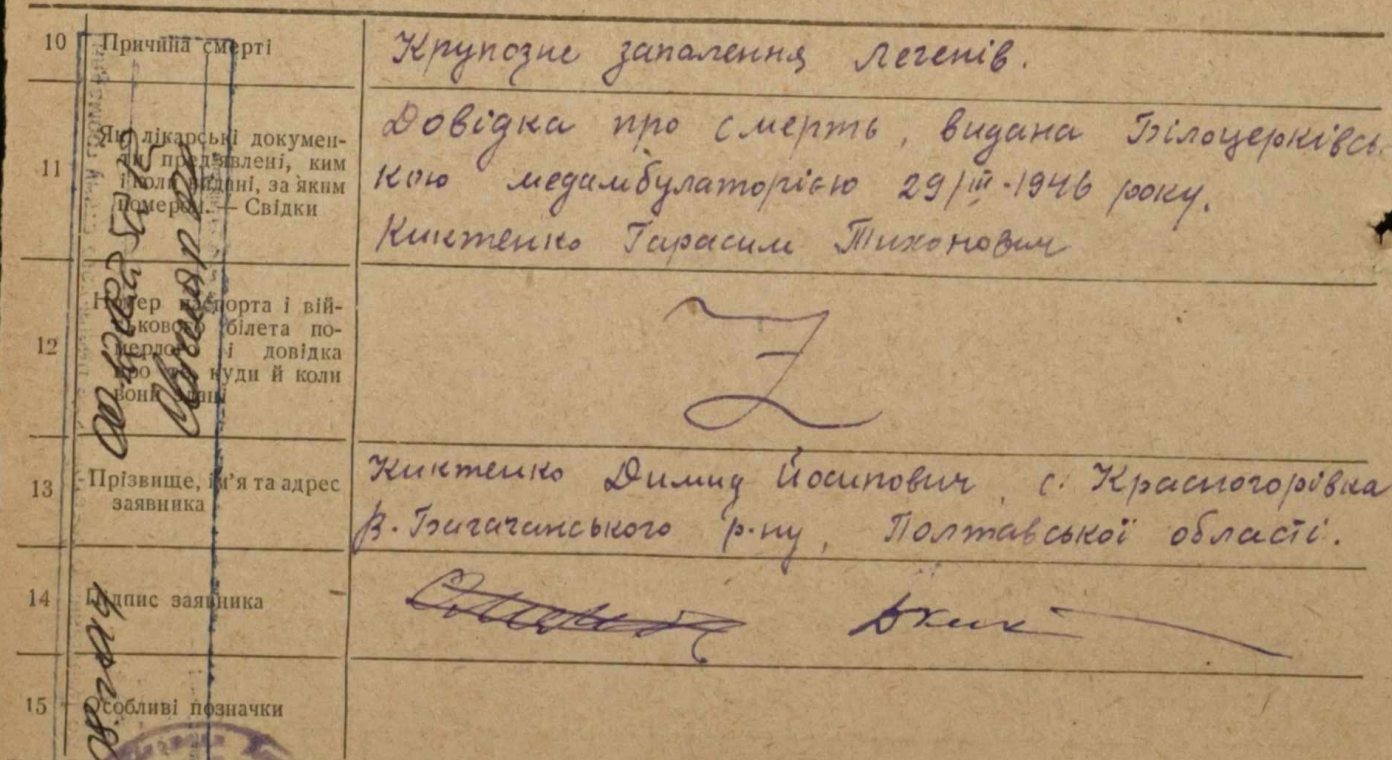 10 Причина смерті
Крупозне запалення легенів.
11 Які лікарські докумен-
ти пред'явлені, ким
і коли видані, за яким
номером. — Свідки
Довідка про смерть, видана Білоцерківсь-
кою медамбулаторією 29/III-1946 року.
Киктенко Гарасим Тихонович
12 Номер паспорта і вій-
ськового білета по-
мерлого і довідка
про те, куди й коли
вони здані
Z
13 Прізвище, ім'я та адрес
заявника
Киктенко Димид Йосипович, с. Красногорівка
В.-Багачанського р-ну, Полтавської області.
14 Підпис заявника
15 Особливі позначки